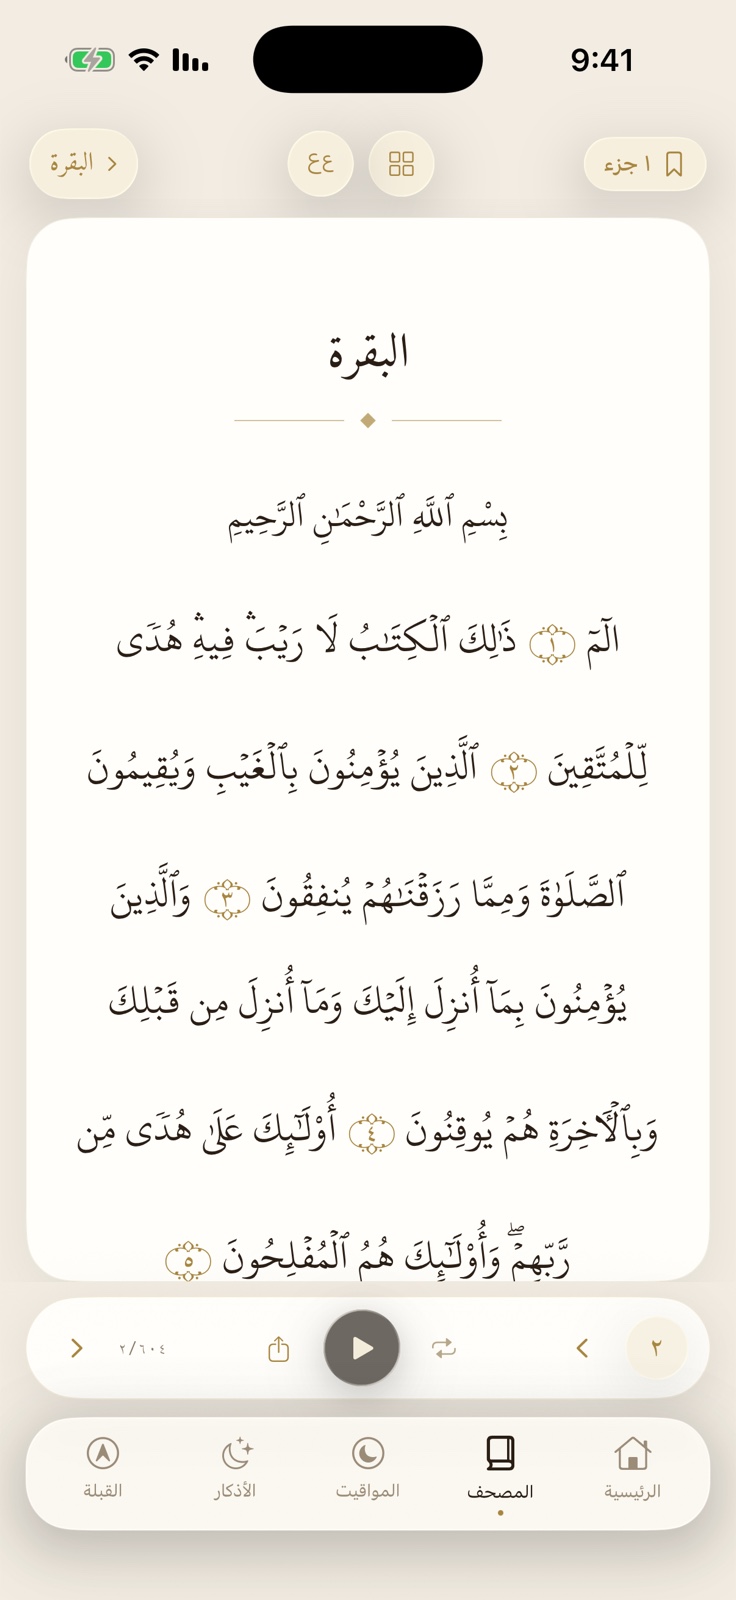 9:41
١ جزء
عع
البقرة
البقرة
بِسْمِ ٱللَّهِ ٱلرَّحْمَـٰنِ ٱلرَّحِيمِ
الٓمٓ ١ ذَٰلِكَ ٱلْكِتَـٰبُ لَا رَيْبَ ۛ فِيهِ ۛ هُدًى
لِّلْمُتَّقِينَ ٢ ٱلَّذِينَ يُؤْمِنُونَ بِٱلْغَيْبِ وَيُقِيمُونَ
ٱلصَّلَوٰةَ وَمِمَّا رَزَقْنَـٰهُمْ يُنفِقُونَ ٣ وَٱلَّذِينَ
يُؤْمِنُونَ بِمَآ أُنزِلَ إِلَيْكَ وَمَآ أُنزِلَ مِن قَبْلِكَ
وَبِٱلْـَٔاخِرَةِ هُمْ يُوقِنُونَ ٤ أُو۟لَـٰٓئِكَ عَلَىٰ هُدًى مِّن
رَّبِّهِمْ ۖ وَأُو۟لَـٰٓئِكَ هُمُ ٱلْمُفْلِحُونَ ٥
٢
٢/٦٠٤
الرئيسية
المصحف
المواقيت
الأذكار
القبلة